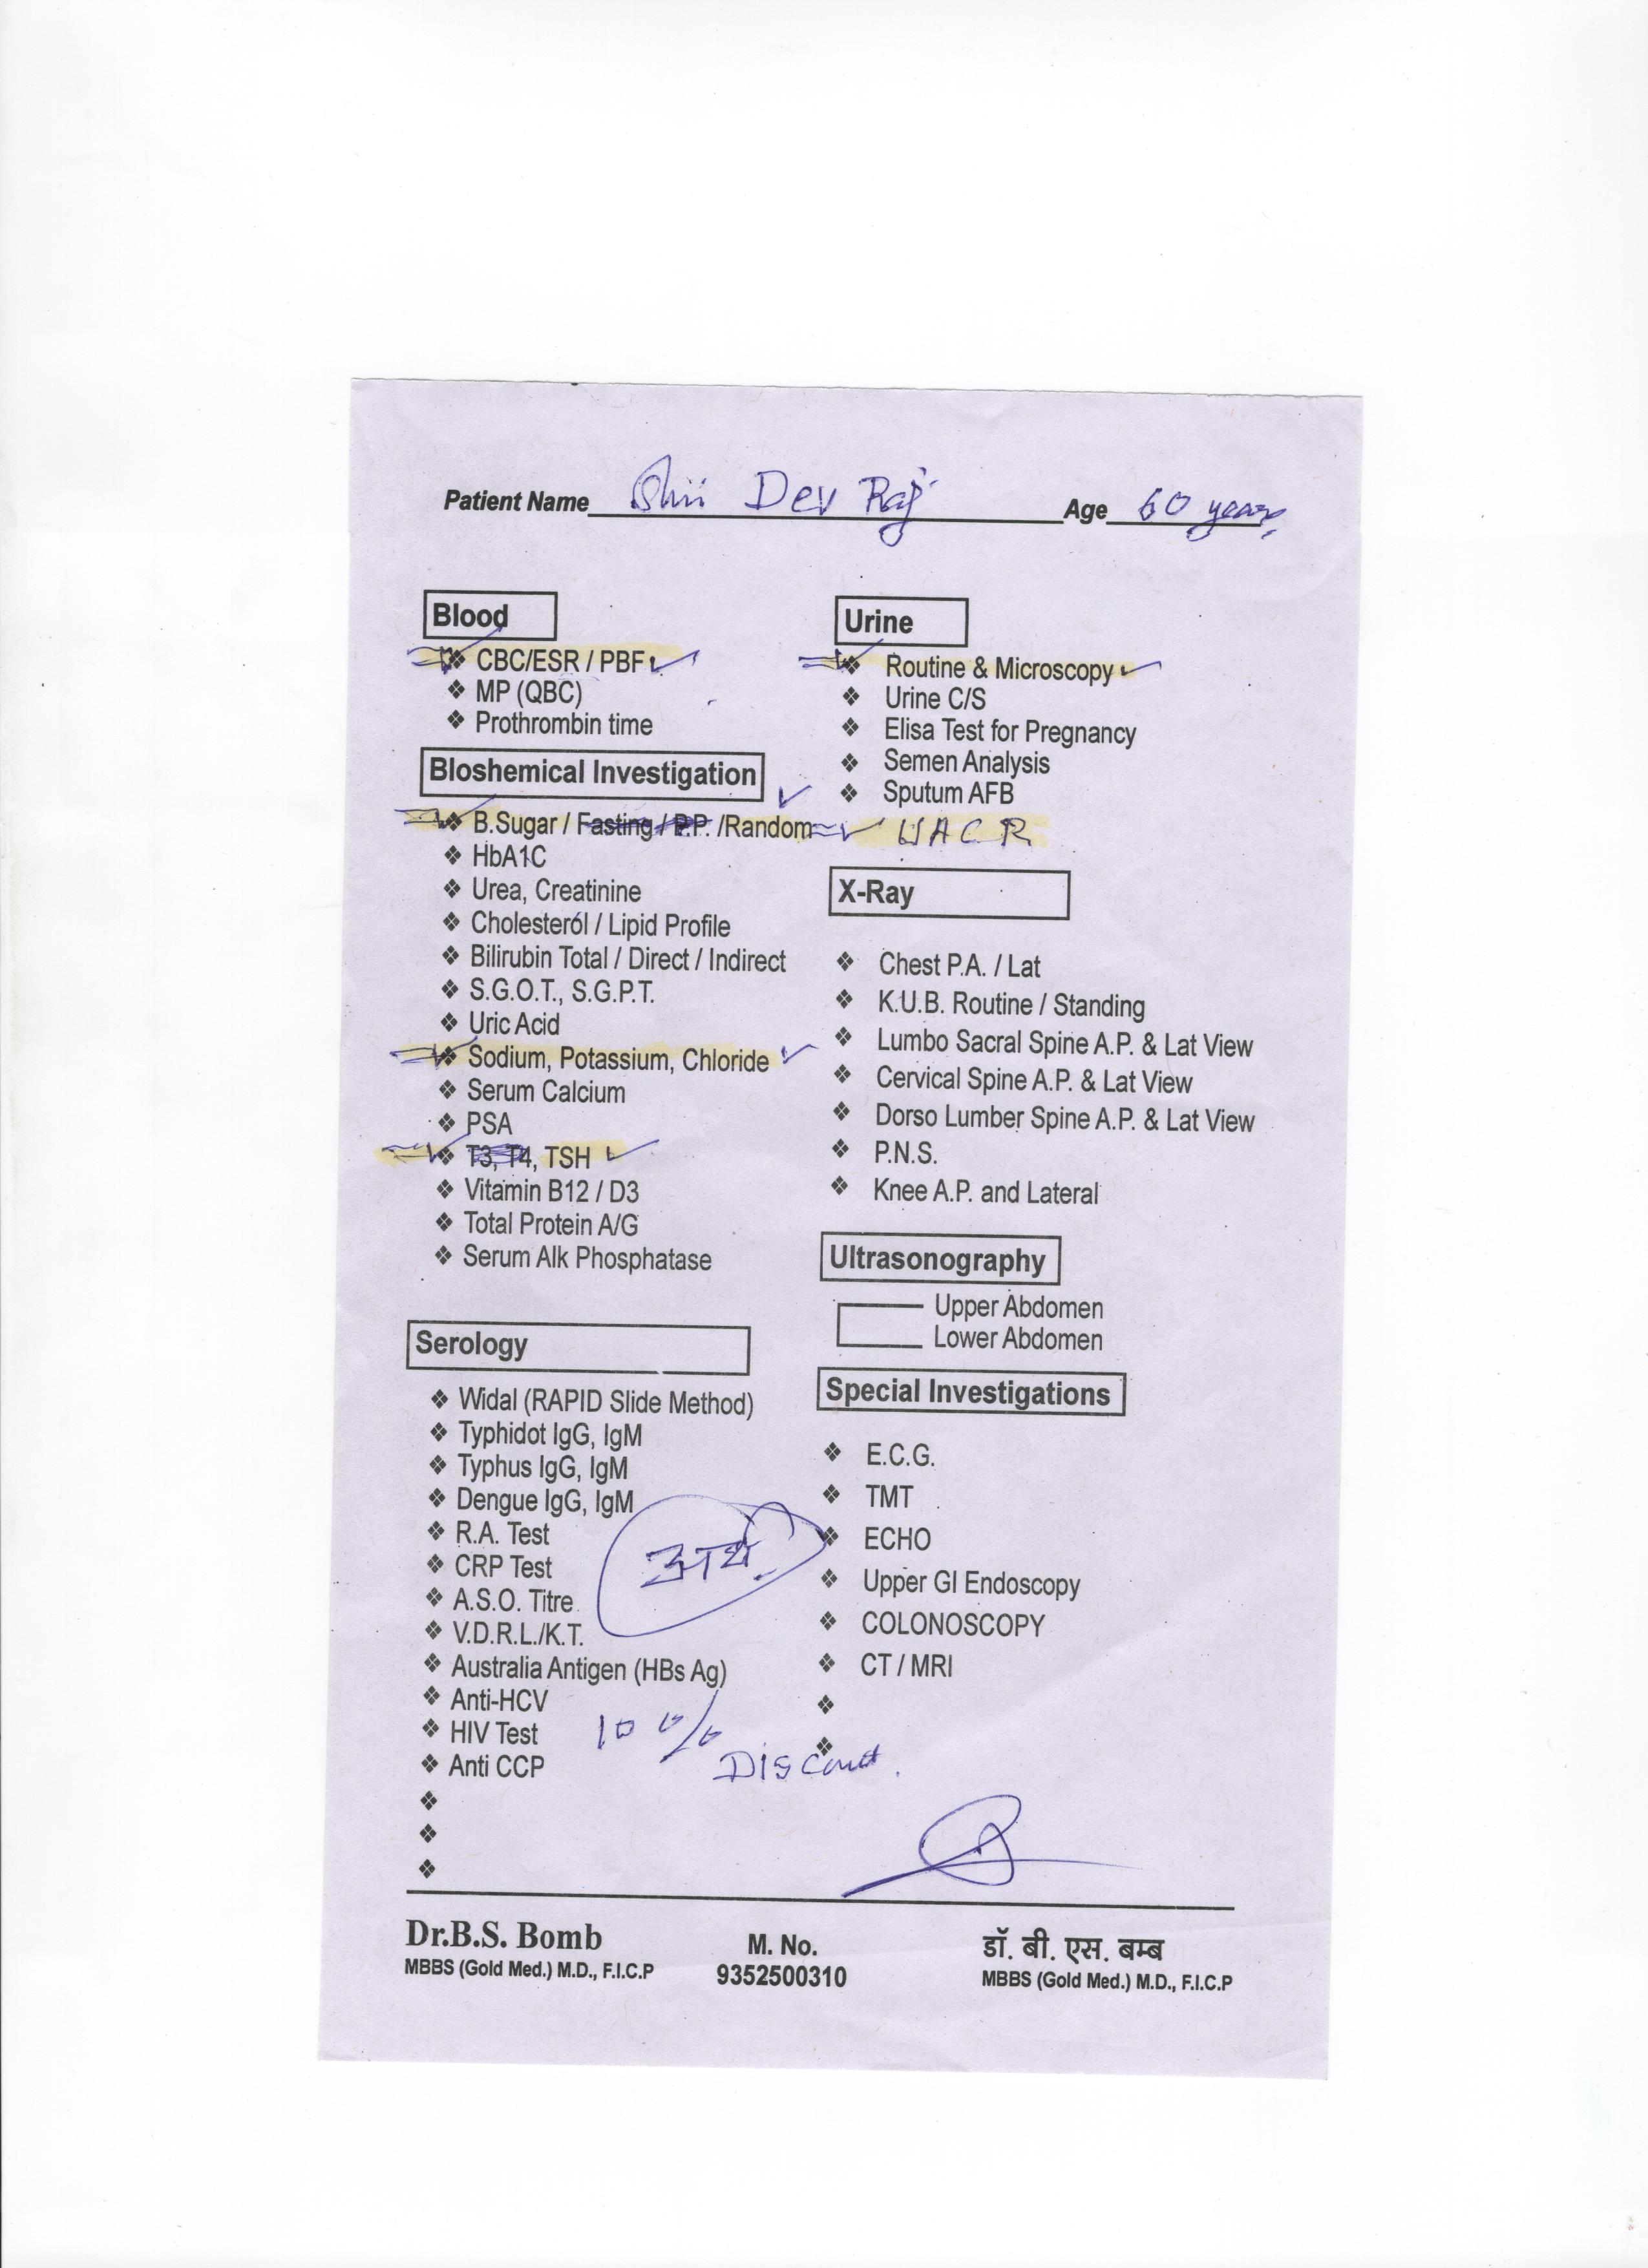 Patient Name Shri Dev Raj Age 60 years
Blood
CBC/ESR / PBF
MP (QBC)
Prothrombin time
Bloshemical Investigation
B.Sugar / Fasting / P.P. /Random
HbA1C
Urea, Creatinine
Cholesterol / Lipid Profile
Bilirubin Total / Direct / Indirect
S.G.O.T., S.G.P.T.
Uric Acid
Sodium, Potassium, Chloride
Serum Calcium
PSA
T3, T4, TSH
Vitamin B12 / D3
Total Protein A/G
Serum Alk Phosphatase
Serology
Widal (RAPID Slide Method)
Typhidot IgG, IgM
Typhus IgG, IgM
Dengue IgG, IgM
R.A. Test
CRP Test
A.S.O. Titre
V.D.R.L./K.T.
Australia Antigen (HBs Ag)
Anti-HCV
HIV Test
Anti CCP
10 %
Discount.
Urine
Routine & Microscopy
Urine C/S
Elisa Test for Pregnancy
Semen Analysis
Sputum AFB
UACR
X-Ray
Chest P.A. / Lat
K.U.B. Routine / Standing
Lumbo Sacral Spine A.P. & Lat View
Cervical Spine A.P. & Lat View
Dorso Lumber Spine A.P. & Lat View
P.N.S.
Knee A.P. and Lateral
Ultrasonography
Upper Abdomen
Lower Abdomen
Special Investigations
E.C.G.
TMT
ECHO
Upper GI Endoscopy
COLONOSCOPY
CT / MRI
Dr.B.S. Bomb
MBBS (Gold Med.) M.D., F.I.C.P
M. No.
9352500310
डॉ. बी. एस. बम्ब
MBBS (Gold Med.) M.D., F.I.C.P